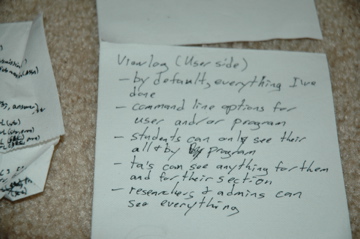 Viewlog (User side)
- by default, everything I've
done
- command line options for
user and/or program
- students can only see their
all & by program
- ta's can see anything for them
and for their section
- researchers & admins can
see everything